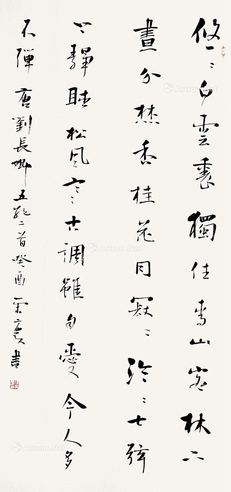 悠〻白雲裏獨住青山客林下
晝焚香桂花同寂〻泠〻七弦
上靜聽松風寒古調雖自愛今人多
不彈 唐劉長卿五絕二首癸酉 書